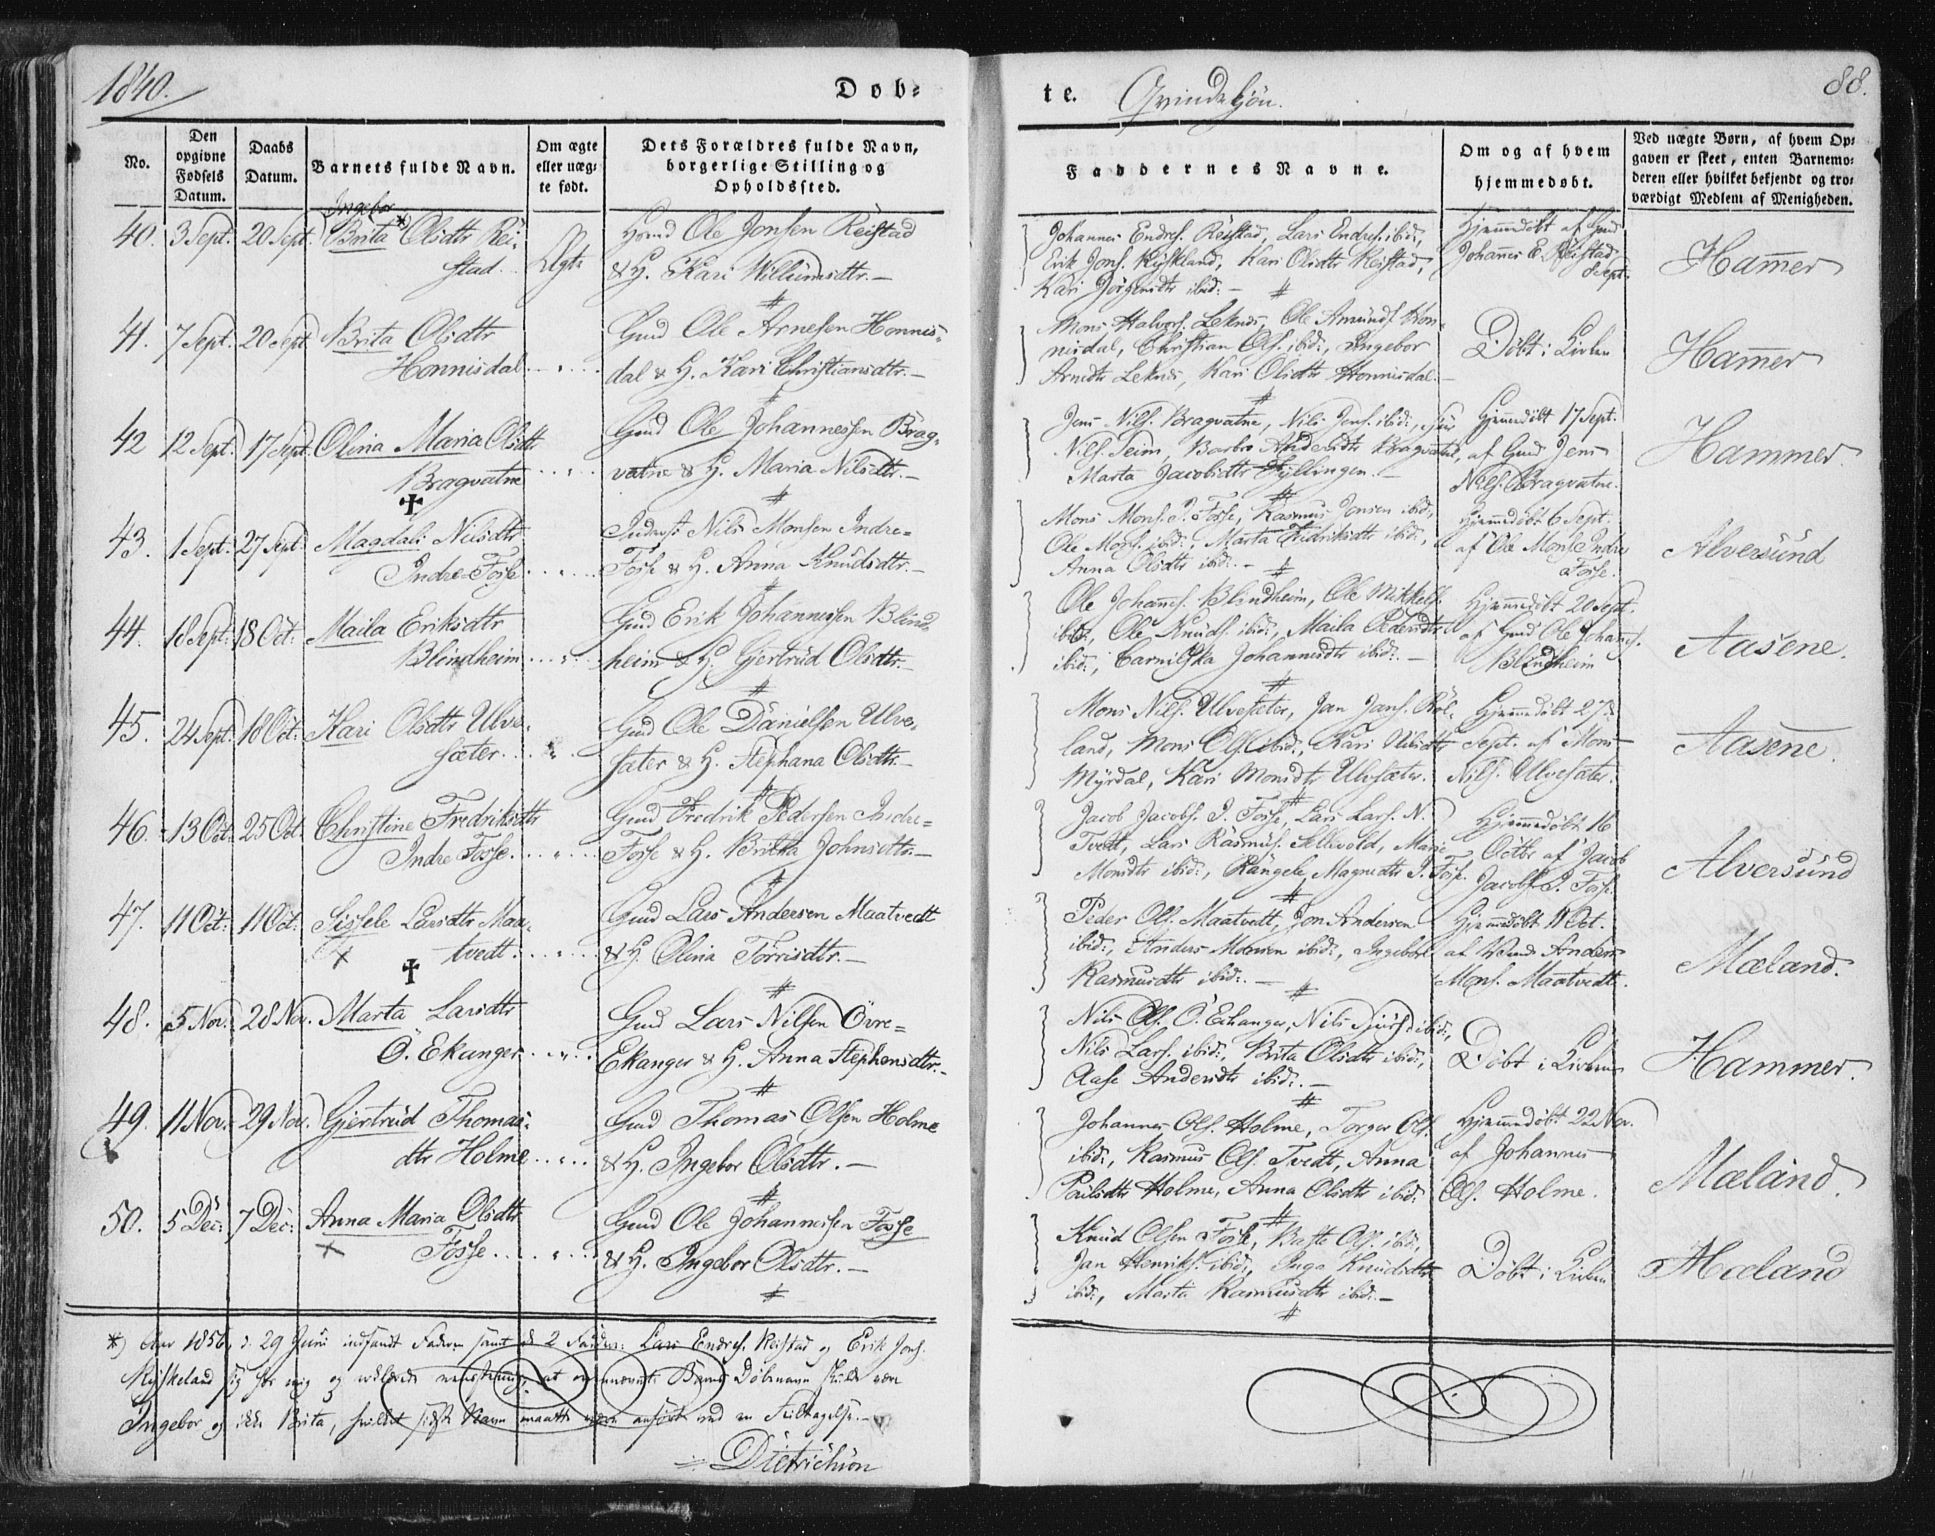 1840.
Døb-
te.
Qvindekjøn.
88.
No.
Den opgivne Fødsels Datum.
Daabs Datum.
Barnets fulde Navn.
Om ægte eller uægte født.
Dets Forældres fulde Navn, borgerlige Stilling og Opholdssted.
Faddernes Navne.
Om og af hvem hjemmedøbt.
Ved uægte Børn, af hvem Opgaven er skeet, enten Barnemoderen eller hvilket bekjendt og troværdigt Medlem af Menigheden.
Ingebor
40. 3 Sept. 20 Sept. Brita *) Olsdtr Rei-
stad. Ægte
Gmd Ole Jonsen Reistad
& H. Kari Willumsdtr. —
Johannes Endres. Reistad, Lars Endres. ibid.,
Erik Jons. Ryskland, Kari Olsdtr Reistad,
Kari Jørgensdtr ibid: —
Hjemmedøbt af Gmd
Johannes E. Reistad
Sept.
Hammer
41. 7 Sept. 20 Sept. Brita Olsdtr
Honnisdal
Gmd Ole Arnesen Honnis-
dal & H. Kari Christiansdtr. —
Mons Halvors. Leknes, Ole Amunds. Hon-
nisdal, Christian Ols. ibid:, Ingebor
Arnedtr Leknes, Kari Olsdtr Honnisdal. —
Døbt i Kirken
Hammer
42 12 Sept. 17 Sept. Olina Maria Olsdtr
Bragvatne
Gmd Ole Johannessen Brag-
vatne & H. Maria Nilsdtr. —
Jens Nils. Bragvatne, Nils Jens. ibid:, Siur
Nils. Seim, Barbro Andersdtr Bragvatne,
Marta Jacobsdtr Hyllingen. —
Hjemmedøbt 17 Sept.
af Gmd Jens
Nils. Bragvatne.
Hammer.
43. 1 Sept. 27 Sept. Magdali Nilsdtr
Indre-Fosse
Inderst Nils Monsen Indre-
Fosse & H. Anna Knudsdtr. —
Mons Mons. I. Fosse, Rasmus Jonsen ibid.,
Ole Mons. ibid:, Marta Fredriksdtr ibid:,
Anna Olsdtr ibid: —
Hjemmedøbt 6 Sept.
af Ole Mons. Indre
Fosse.
Alversund
44. 18 Sept. 18 Oct. Maila Eriksdtr
Blindheim
Gmd Erik Johannessen Blind-
heim & H. Gjertrud Olsdtr. —
Ole Johans. Blindheim, Ole Mikkels.
ibid., Ole Knuds. ibid:, Maila Pedersdtr
ibid:, Carnilska Johannesdtr ibid: —
Hjemmedøbt 20 Sept.
af Gmd Ole Johans.
Blindheim
Aasene.
45. 24 Sept. 18 Oct. Kari Olsdtr Ulve-
sæter.
Gmd Ole Danielsen Ulve-
sæter & H. Stephana Olsdtr. —
Mons Nils. Ulvesæter, Jan Jans. Røl-
land, Mons Ols. ibid:, Kari Nilsdtr
Myrdal, Kari Monsdtr Ulvesæter.
Hjemmedøbt 27
Sept. af Mons
Nils. Ulvesæter.
Aasene.
46. 13 Oct. 25 Oct. Christine Fredriksdtr
Indre Fosse.
Gmd Fredrik Pedersen Indre-
Fosse & H. Britha Johnsdtr. —
Jacob Jacobs. I. Fosse, Lars Lars. N.
Tvedt, Lars Rasmus. Sellevold, Marie
Monsdtr ibid:, Rangele Magnedtr I. Fosse.
Hjemmedøbt 16
Octbr af Jacob
Jacobs. I. Fosse.
Alversund
47. 11 Oct. 11 Oct. Sissele Larsdtr Maa-
tvedt.
Gmd Lars Andersen Maatvedt
& H. Olina Torrisdtr. —
Peder Ols. Maatvedt, Jon Andersen
ibid:, Anders Monsen ibid:, Ingebor
Rasmusdtr ibid: —
Hjemmedøbt 11 Oct.
af Anders
Mons. Maatvedt.
Mæland.
48. 5 Nov. 28 Nov. Marta Larsdtr
Ö. Ekanger
Gmd Lars Nilsen Övre-
Ekanger & H. Anna Stephensdtr. —
Nils Ols. Ö. Echanger, Nils Siurs. ibid.,
Nils Lars. ibid:, Brita Olsdtr ibid:,
Aase Andersdtr ibid: —
Døbt i Kirken
Hammer.
49. 11 Nov. 29 Nov. Gjertrud Thomas-
dtr Holme
Gmd Thomas Olsen Holme
& H. Ingebor Olsdtr. —
Johannes Ols. Holme, Torger Ols.
ibid:, Rasmus Ols. Tvedt, Anna
Pailsdtr Holme, Anna Olsdtr ibid:
Hjemmedøbt 22 Nov.
af Johannes
Ols. Holme.
Mæland.
50. 5 Dec: 7 Dec: Anna Maria Olsdtr
Fosse
Gmd Ole Johannessen Fosse
& H. Ingebor Olsdtr. —
Knud Olsen Fosse, Baste Ols. ibid.,
Jan Henriks. ibid:, Inga Knudsdtr
ibid:, Marta Rasmusdtr ibid: —
Døbt i Kirken
Mæland
*) Aar 1856, d. 29 Juni indfandt Faderen samt de 2 Faddere: Lars Endres. Reistad og Erik Jons.
Ryskeland sig for mig og erklærede at ommeldte Barns Døbenavn skulde være
Ingebor og ikke Brita, hvilket sidste Navn maatte være anført ved en Feiltagelse. —
Dietrichson